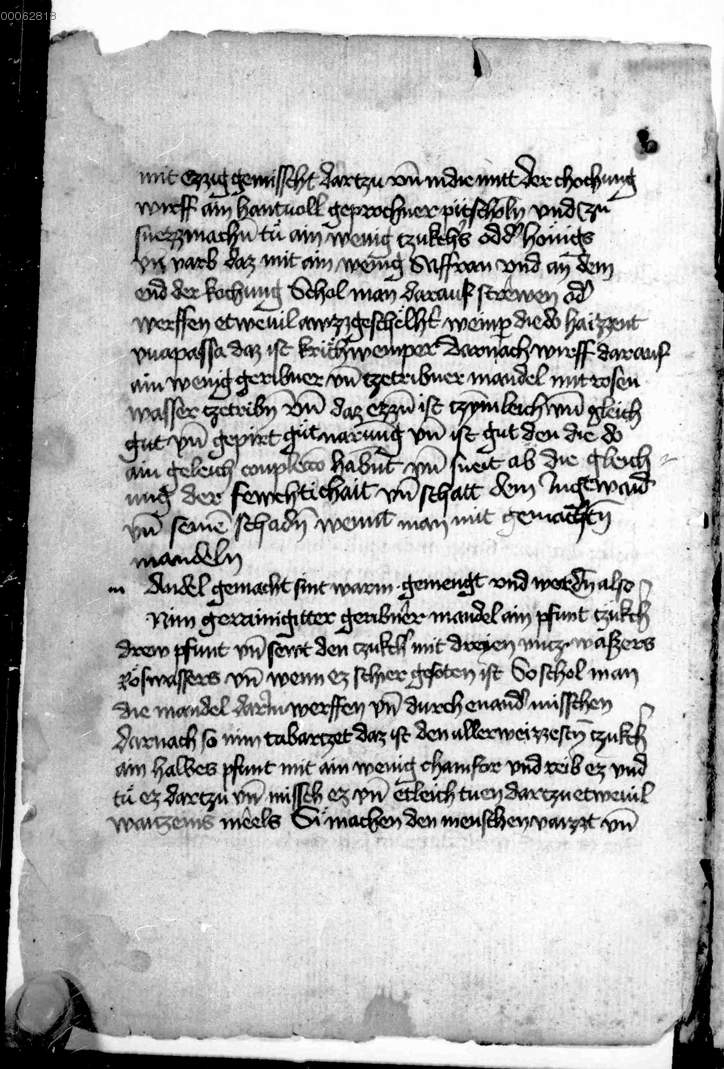 00062818
mit ezzig gemisscht dartzu vn̄ in die mitt der chochung
wirff ain hantuoll geprochner pitscholn vnd zu
suezzmachn̄ tu̇ ain wenig czukchs oder honigs
vn̄ varb daz mit ain wenig Saffran vnd an dem
end der kochung Schol man darauf strewen oder
werffen etwevil awzzgeschelht weimper die do haizzent
vuapassa daz ist krichweimper Darnach wirff darauf
ain wenig geribner vn̄ tzetribner mandel mit rosen
wasser tzetribn̄ vn̄ daz ezzn̄ ist tzymleich vn̄ gleich
gut vn̄ gepirt gut narung vn̄ ist gut den die do
ain geleich complexio habn̄t vn̄ sneit ab die gleich
ung der fewchtichait vn̄ schatt dem Ingewaid
vn̄ semē schadn̄ wennt man mit gemachtn̄
mandeln
m andel gemacht sint warm gemengt vnd werdn̄ also
Nim gerainigitter geribner mandel ain pfunt czukch
drew pfunt vn̄ sewt den czukch mit dreyen vncz wassers
Roswassers vn̄ wenn ez schier gesoten ist So schol man
die mandel darin werffen vn̄ durch enander misschen
Darnach so nim tabartzet daz ist den allerweizzestn̄ czukch
ain halbes pfunt mit ain wenig chamfor vnd reib ez vnd
tu̇ ez dartzu vn̄ missch ez vn̄ etleich tuen dartzu etwevil
waitzeins meels Si machen den menschen vaizt vn̄